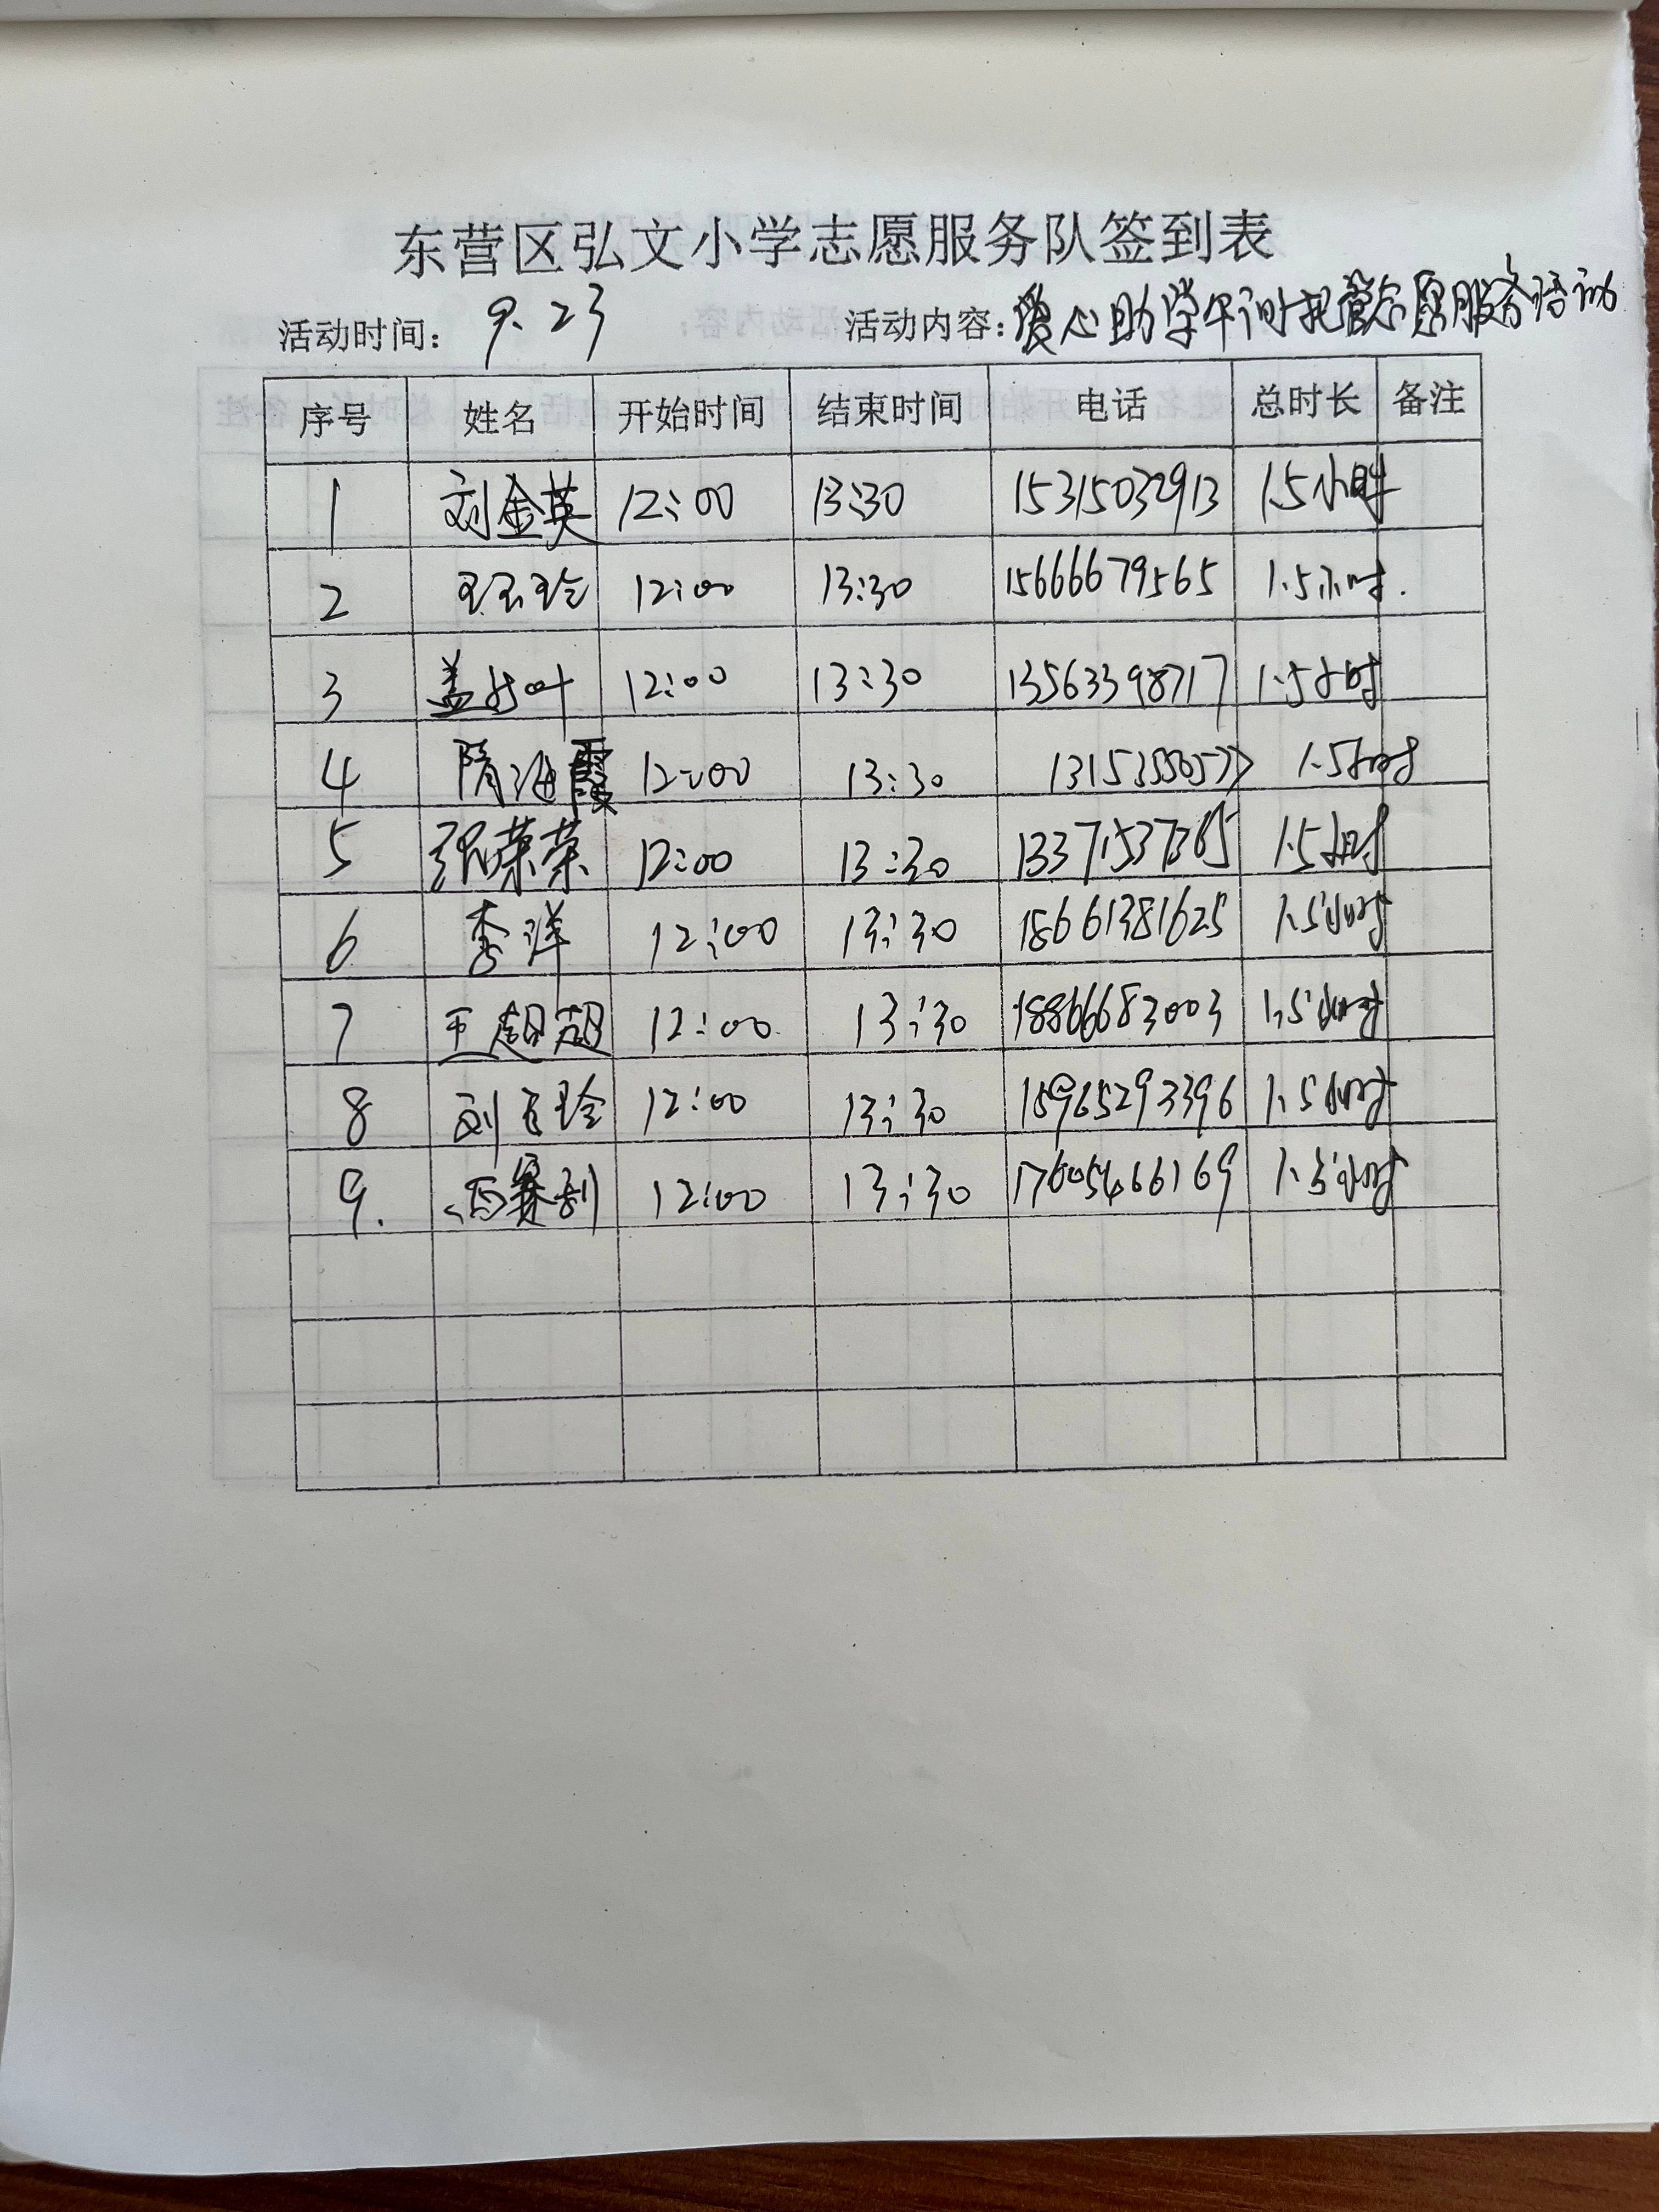 东营区弘文小学志愿服务队签到表
活动时间: 9.23 活动内容: 爱心助学午间托管志愿服务活动
序号 姓名 开始时间 结束时间 电话 总时长 备注
1 刘金英 12:00 13:30 15315032913 1.5小时
2 12:00 13:30 15666679565 1.5小时.
3 盖 叶 12:00 13:30 13563398717 1.5小时
4 隋海霞 12:00 13:30 1.5小时
5 张荣荣 12:00 13:30 13371537365 1.5小时
6 李洋 12:00 13:30 18661381625 1.5小时
7 王超超 12:00 13:30 18866683003 1.5小时
8 刘 玲 12:00 13:30 15965293396 1.5小时
9. 12:00 13:30 17605466169 1.5小时